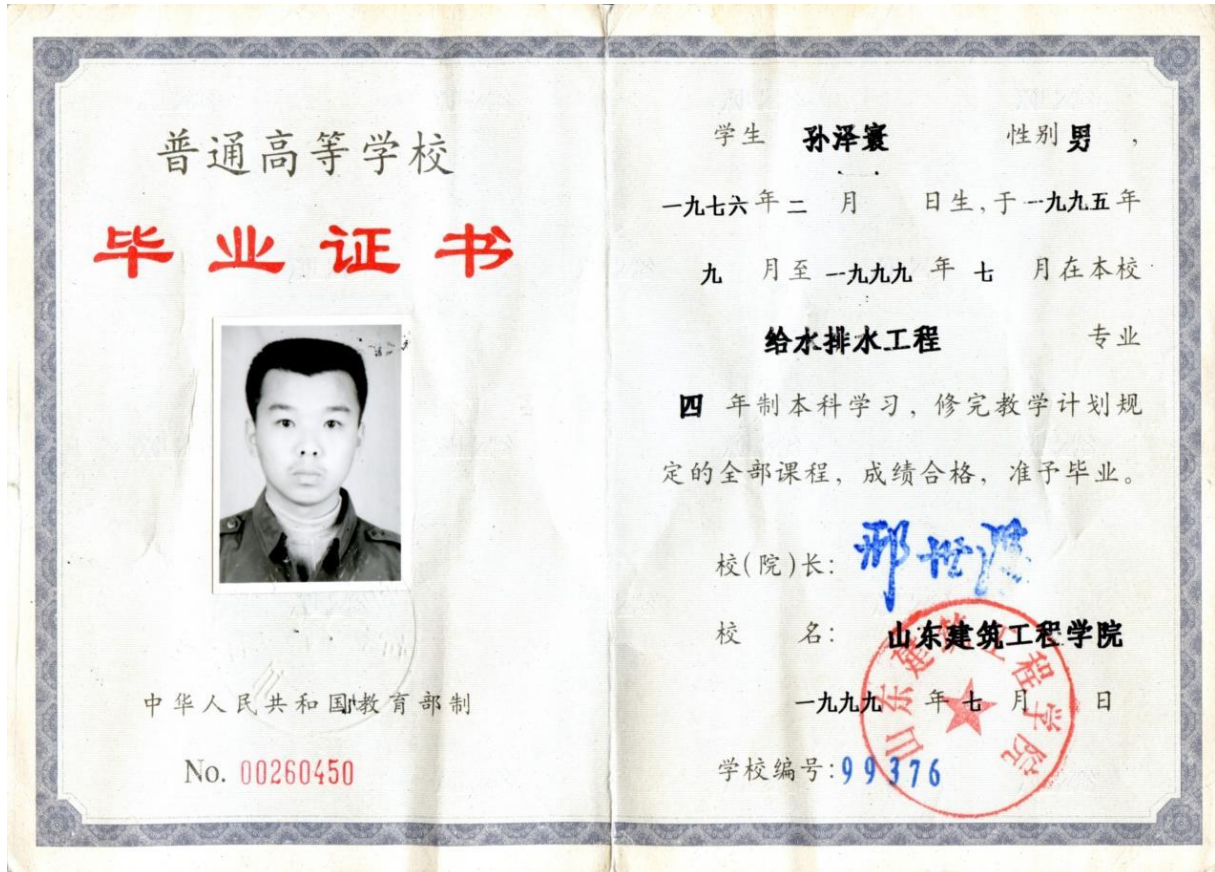 普通高等学校
毕业证书
中华人民共和国教育部制
No. 00260450
学生 孙泽寰 性别 男 ,
一九七六年二 月 日生,于一九九五年
九 月至 一九九九 年 七 月在本校
给水排水工程 专业
四 年制本科学习, 修完教学计划规
定的全部课程, 成绩合格, 准予毕业。
校(院)长:
校 名: 山东建筑工程学院
山东建筑工程学院
一九九九 年 七 月 日
学校编号:99376